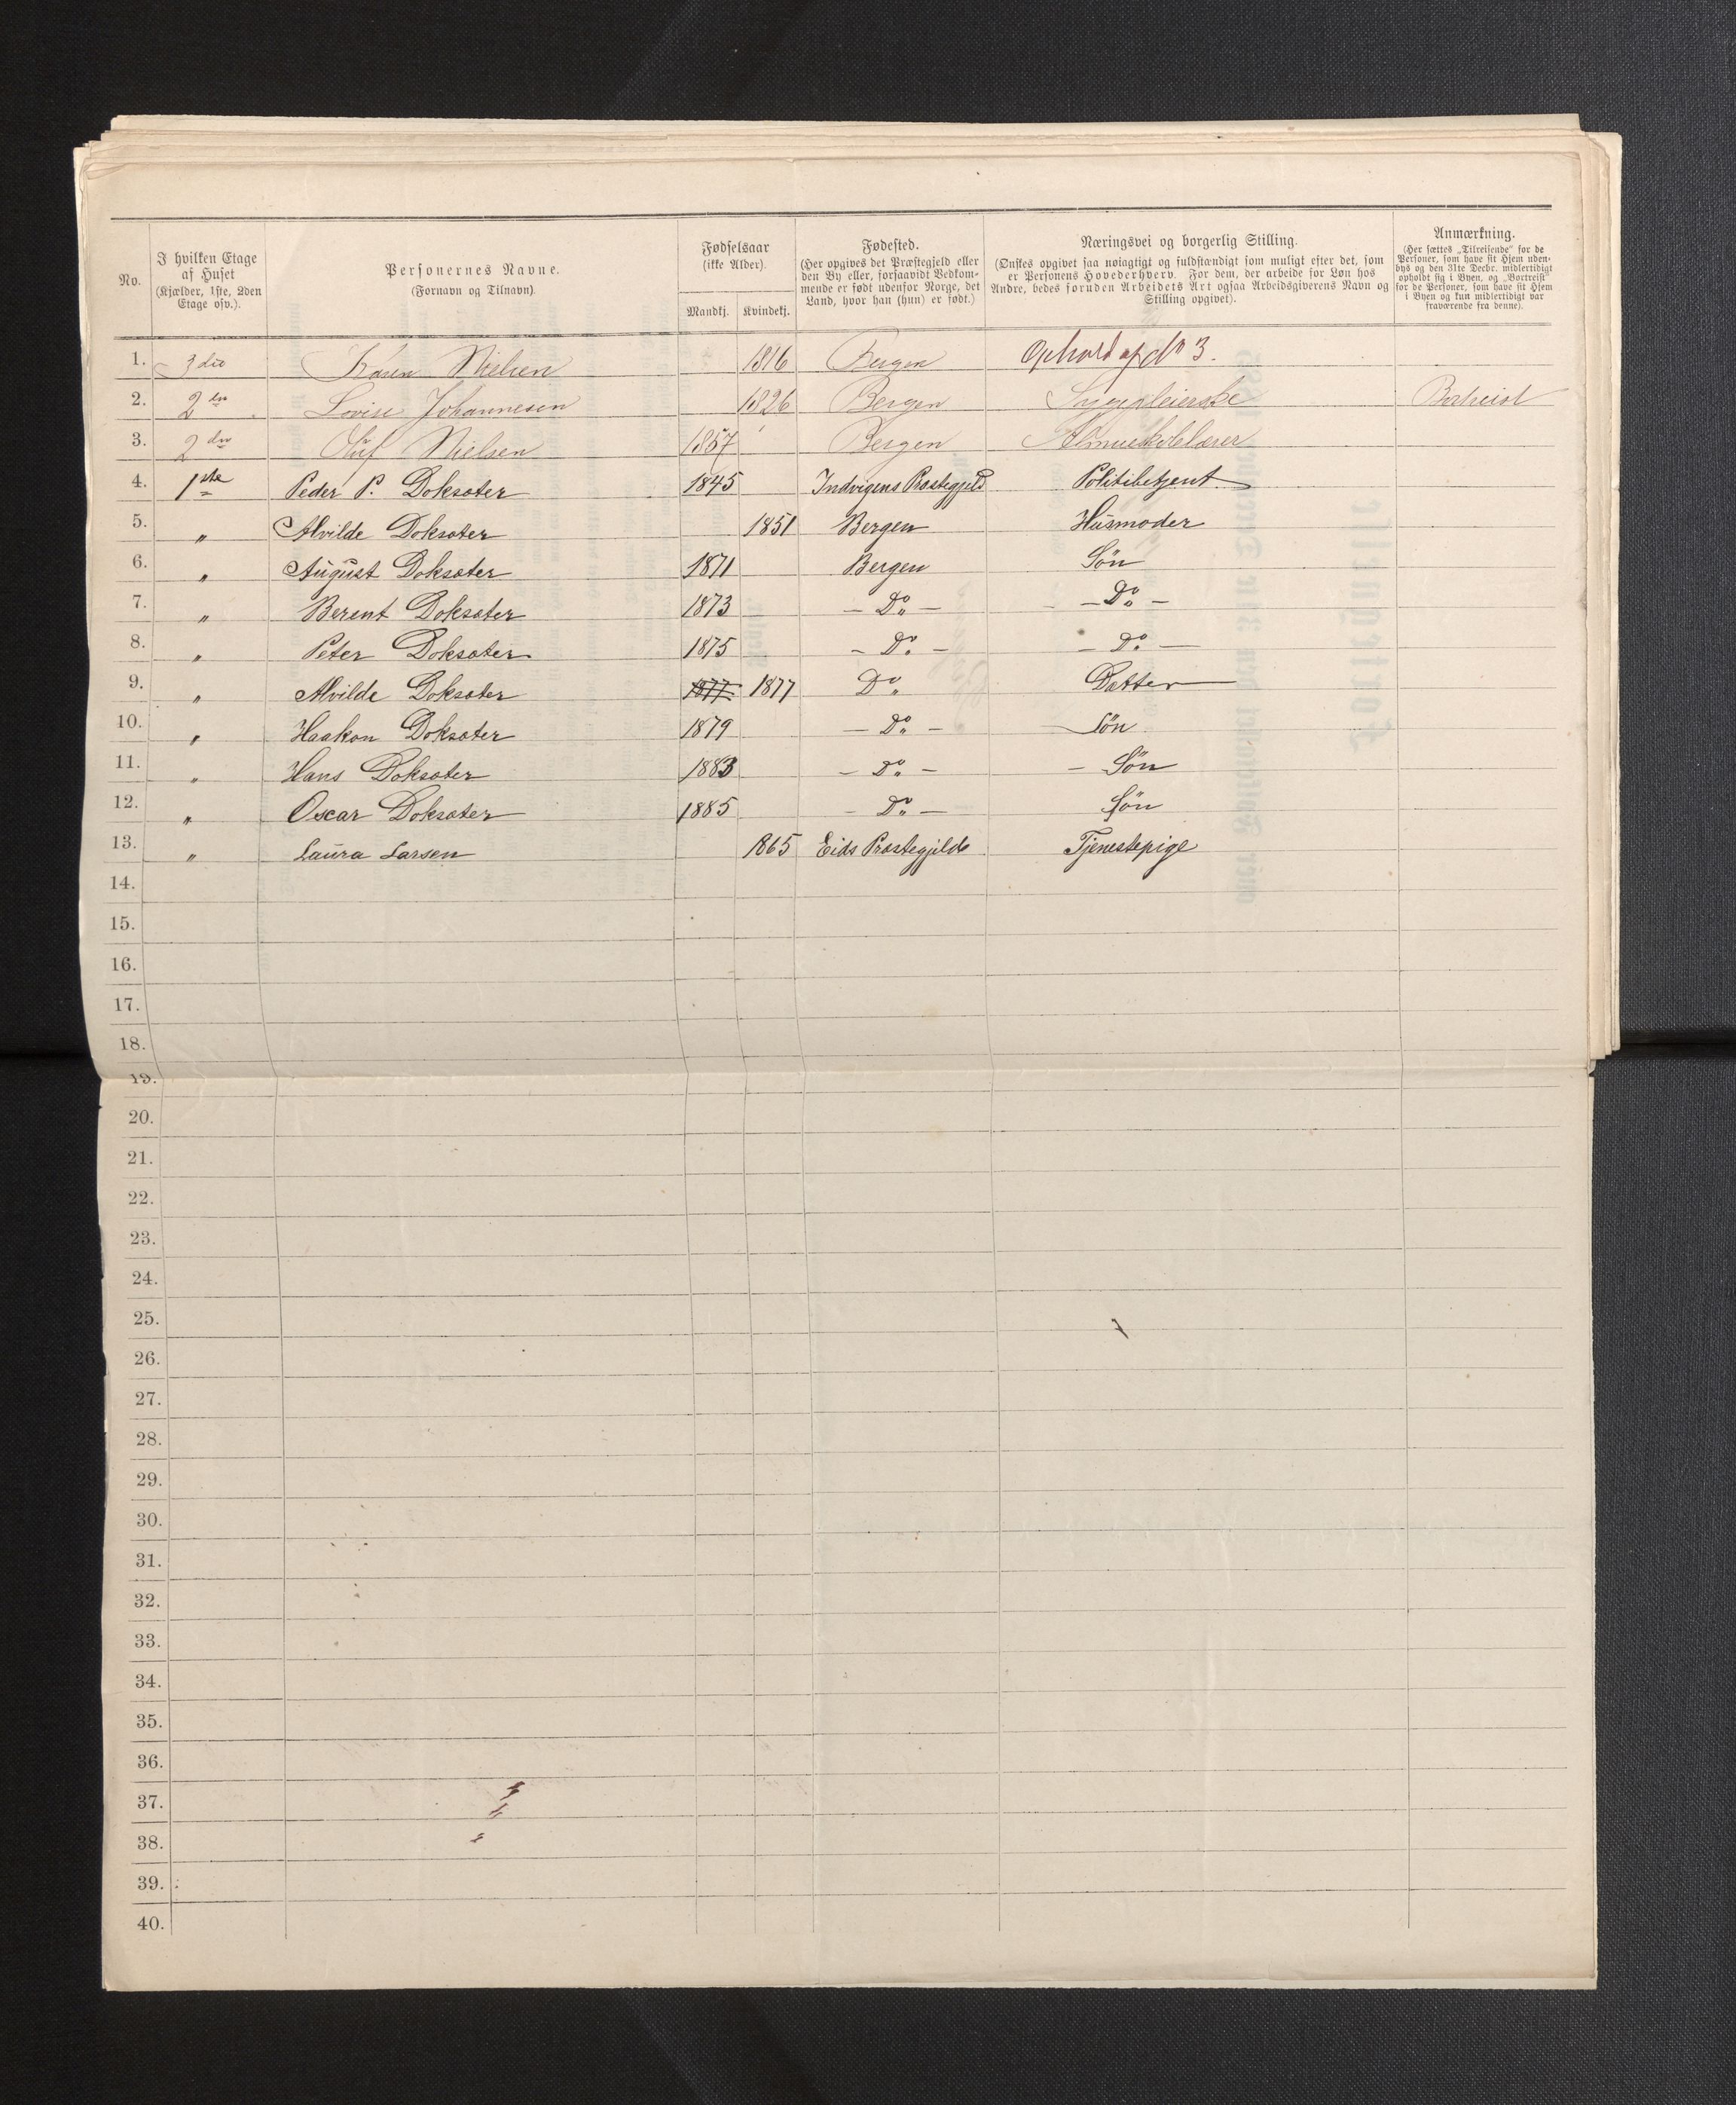 No.
I hvilken Etage
af Huset
(Kjælder, 1ste, 2den
Etage osv.).
Personernes Navne.
(Fornavn og Tilnavn).
Fødselsaar
(ikke Alder).
Mandkj. Kvindekj.
Fødested.
(Her opgives det Præstegjeld eller
den By eller, forsaavidt Vedkom-
mende er født udenfor Norge, det
Land, hvor han (hun) er født.)
Næringsvei og borgerlig Stilling.
(Ønskes opgivet saa nøiagtigt og fuldstændigt som muligt efter det, som
er Personens Hovederhverv. For dem, der arbeide for Løn hos
Andre, bedes foruden Arbeidets Art ogsaa Arbeidsgiverens Navn og
Stilling opgivet).
Anmærkning.
(Her sættes „Tilreisende" for de
Personer, som have sit Hjem uden-
bys og den 31te Decbr. midlertidigt
opholdt sig i Byen, og „Bortreist"
for de Personer, som have sit Hjem
i Byen og kun midlertidigt var
fraværende fra denne).
1. 3die Karen Nielsen 1816 Bergen Ophold af No 3.
2. 2den Lovise Johannesen 1826 Bergen Sygepleierske Bortreist
3. 2den Oluf Nielsen 1857 Bergen Almueskolelærer
4. 1ste Peder P. Doksæter 1845 Indvigens Præstegjeld Politibetjent
5. " Alvilde Doksæter 1851 Bergen Husmoder
6. " August Doksæter 1871 Bergen Søn
7. " Berent Doksæter 1873 – Do – – Do –
8. " Peter Doksæter 1875 – Do – – Do –
9. " Alvilde Doksæter 1877 1877 Do Datter
10. " Haakon Doksæter 1879 – Do – Søn
11. " Hans Doksæter 1883 – Do – – Søn
12. " Oscar Doksæter 1885 – Do – Søn
13. " Laura Larsen 1865 Eids Præstegjeld Tjenestepige
14.
15.
16.
17.
18.
19.
20.
21.
22.
23.
24.
25.
26.
27.
28.
29.
30.
31.
32.
33.
34.
35.
36.
37.
38.
39.
40.